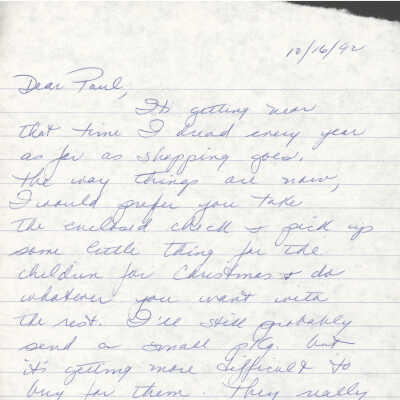 10/16/92
Dear Paul,
It's getting near
that time I dread every year
as far as shopping goes.
The way things are now,
I would prefer you take
the enclosed check & pick up
some little thing for the
children for Christmas & do
whatever you want with
the rest. I'll still probably
send a small pkg. but
it's getting more difficult to
buy for them. They really